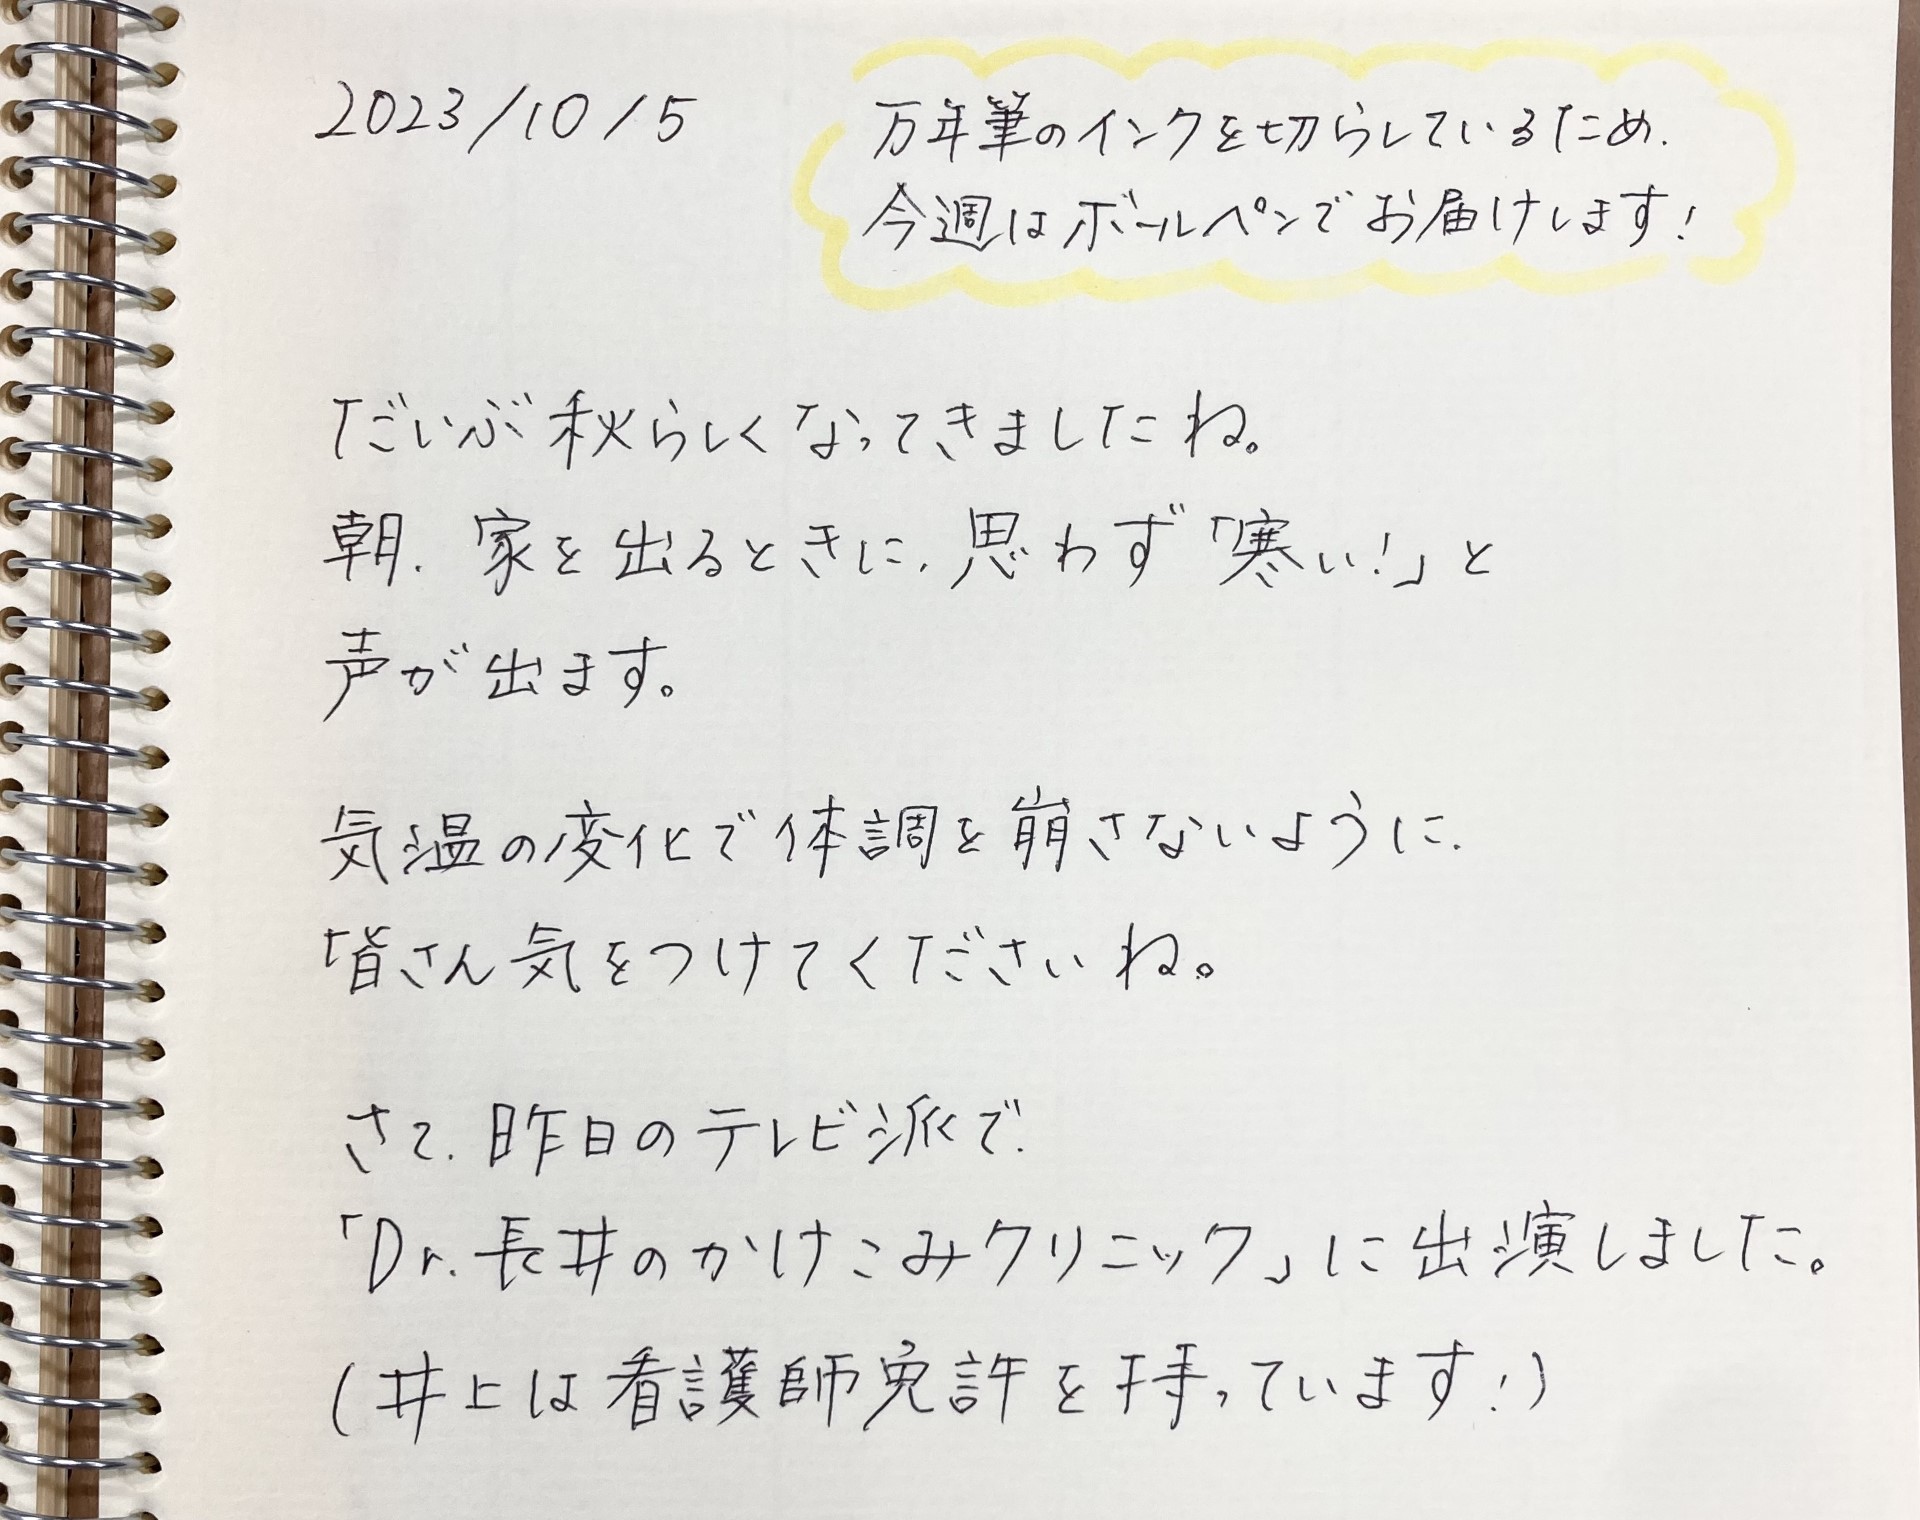 2023/10/5
万年筆のインクを切らしているため、
今週はボールペンでお届けします!
だいぶ秋らしくなってきましたね。
朝、家を出るときに、思わず「寒い!」と
声が出ます。
気温の変化で体調を崩さないように、
皆さん気をつけてくださいね。
さて、昨日のテレビ派で、
「Dr.長井のかけこみクリニック」に出演しました。
(井上は看護師免許を持っています!)